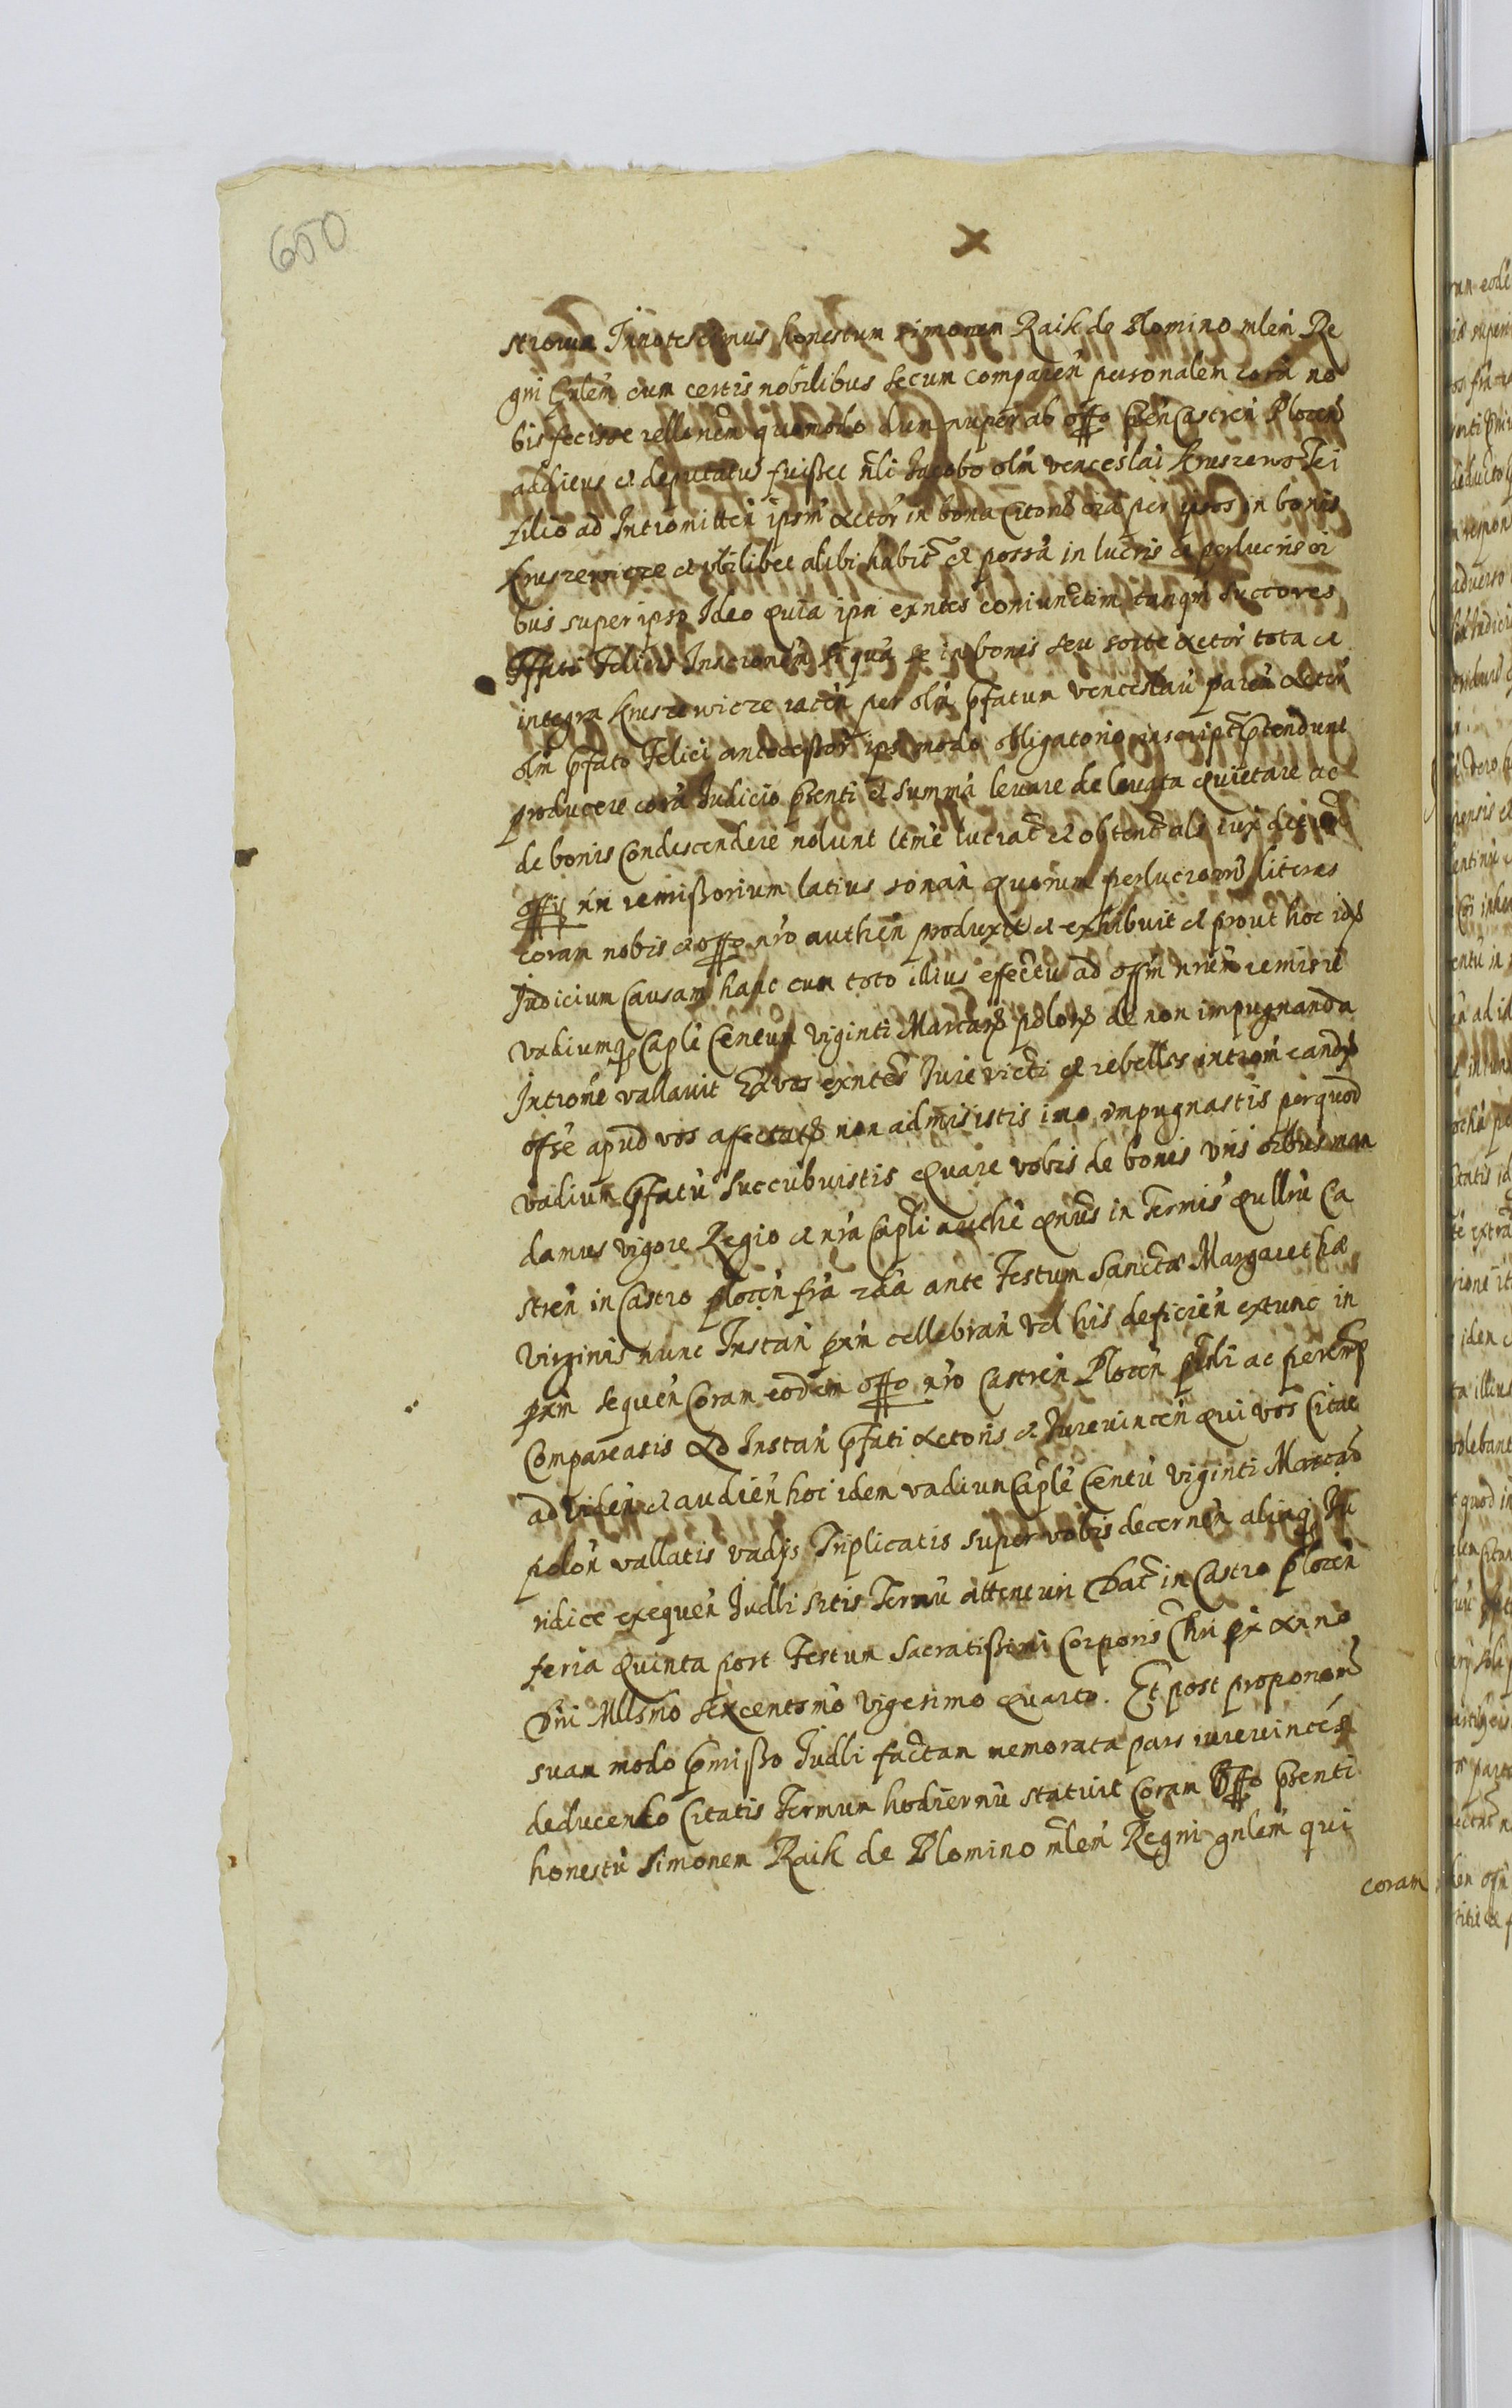 650
x
strorum Innotescimus honestum simonem Raik de Plomino mlem Re
gni Gnlem cum certis nobilibus secum comparen personalem corā no
bis fecisse rellonem quomodo dum nuper ab offo pñ Castren Plocen
additus et deputatus fuisset nli Jacobo olm venceslai Kruszewskei
filio ad Intromitten ipsm Actor in bona Citorȝ oīa per ipsos in bonis
Kruszewicze et vbilibet alibi habit et possa in lucris et perlucris oi
bus super ipsȝ Ideo quia ipsi exntes coniunctim tanqm succores
pffati Felicis Inscionem si quā se in bonis seu sorte Actor tota et
integra Kruszewicze iacen per olm pfatum venceslaū paren Actor
olm pfato Felici antecessor ipsȝ modo obligatorio inscript ptendunt
producere corā Iudicio psenti et summā levare de levata quietare ac
de bonis Condescendere nolunt ltme lucrat et obtent als iux dect
offij nri remissorium latius sonan quorum perlucrorū literas
coram nobis et offo nro authen produxit et exhibuit et prout hoc idȝ
Judicium Causam hanc cum toto illius efectu ad offm nrum remisit
vadiumqȝ Capli Centum viginti Marcarȝ polorȝ de non impugnanda
Intrōne vallavit Et vos exntes Jure victi et rebelles introm candȝ
offse apud vos afectatȝ non admisistis imo impugnastis perquod
vadium pfatū succubuistis Quare vobis de bonis vris oibus man
damus vigore Regio et nra Capli authe qnus in Termis Qullrū Ca
stren in Castro plocen fra 2da ante Festum Sanctæ Margarethæ
Virginis nunc Instan pxm cellebran vel his deficien extunc in
pxm sequen Coram eodem offo nro Castren Plocen pnli ac peremp
Compareatis Ad Instan pfati Actoris et Jurevincen qui vos Citat
ad viden et audien hoc idem vadium Caple Centū viginti Marcarȝ
polon vallatis vadijs Triplicatis super vobis decernen aliaqȝ Ju
ridice exequen Judli sitis Termū attenturi Dat in Castro plocen
feria Quinta post Festum Sacratissimi Corporis Chri px Anno
Dni Mllsmo sexcentsmo vigesimo quarto. Et post proponem
suam modo pmisso Judli factam memorata pars iurevinces
deducendo Citatis Termum hodiernū statuit Coram Offo psenti
honestū Simonem Raik de Plomino mlem Regni gnlem qui
coram